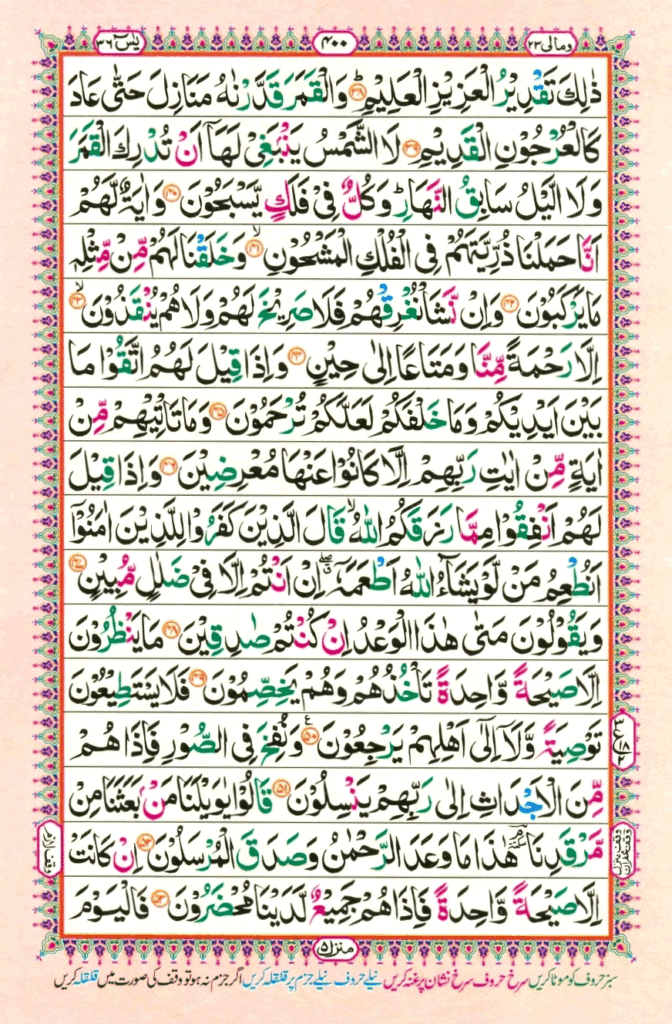 ومالی ۲۳
۴۰۰
یٰسٓ ۳۶
ذٰلِكَ تَقْدِيْرُ الْعَزِيْزِ الْعَلِيْمِؕ ۳۸ وَالْقَمَرَ قَدَّرْنٰهُ مَنَازِلَ حَتّٰى عَادَ
كَالْعُرْجُوْنِ الْقَدِيْمِ ۳۹ لَا الشَّمْسُ يَنْۢبَغِيْ لَهَاۤ اَنْ تُدْرِكَ الْقَمَرَ
وَلَا الَّيْلُ سَابِقُ النَّهَارِؕ وَكُلٌّ فِيْ فَلَكٍ يَّسْبَحُوْنَ ۴۰ وَاٰيَةٌ لَّهُمْ
اَنَّا حَمَلْنَا ذُرِّيَّتَهُمْ فِي الْفُلْكِ الْمَشْحُوْنِۙ ۴۱ وَخَلَقْنَا لَهُمْ مِّنْ مِّثْلِهٖ
مَا يَرْكَبُوْنَ ۴۲ وَاِنْ نَّشَاْ نُغْرِقْهُمْ فَلَا صَرِيْخَ لَهُمْ وَلَا هُمْ يُنْقَذُوْنَۙ ۴۳
اِلَّا رَحْمَةً مِّنَّا وَمَتَاعًا اِلٰى حِيْنٍ ۴۴ وَاِذَا قِيْلَ لَهُمُ اتَّقُوْا مَا
بَيْنَ اَيْدِيْكُمْ وَمَا خَلْفَكُمْ لَعَلَّكُمْ تُرْحَمُوْنَ ۴۵ وَمَا تَاْتِيْهِمْ مِّنْ
اٰيَةٍ مِّنْ اٰيٰتِ رَبِّهِمْ اِلَّا كَانُوْا عَنْهَا مُعْرِضِيْنَ ۴۶ وَاِذَا قِيْلَ
لَهُمْ اَنْفِقُوْا مِمَّا رَزَقَكُمُ اللّٰهُۙ قَالَ الَّذِيْنَ كَفَرُوْا لِلَّذِيْنَ اٰمَنُوْۤا
اَنُطْعِمُ مَنْ لَّوْ يَشَآءُ اللّٰهُ اَطْعَمَهٗۤ ۖ اِنْ اَنْتُمْ اِلَّا فِيْ ضَلٰلٍ مُّبِيْنٍ ۴۷
وَيَقُوْلُوْنَ مَتٰى هٰذَا الْوَعْدُ اِنْ كُنْتُمْ صٰدِقِيْنَ ۴۸ مَا يَنْظُرُوْنَ
اِلَّا صَيْحَةً وَّاحِدَةً تَاْخُذُهُمْ وَهُمْ يَخِصِّمُوْنَ ۴۹ فَلَا يَسْتَطِيْعُوْنَ
تَوْصِيَةً وَّلَاۤ اِلٰۤى اَهْلِهِمْ يَرْجِعُوْنَ ۵۰ وَنُفِخَ فِي الصُّوْرِ فَاِذَا هُمْ
مِّنَ الْاَجْدَاثِ اِلٰى رَبِّهِمْ يَنْسِلُوْنَ ۵۱ قَالُوْا يٰوَيْلَنَا مَنْۢ بَعَثَنَا مِنْ
مَّرْقَدِنَا هٰذَا مَا وَعَدَ الرَّحْمٰنُ وَصَدَقَ الْمُرْسَلُوْنَ ۵۲ اِنْ كَانَتْ
اِلَّا صَيْحَةً وَّاحِدَةً فَاِذَا هُمْ جَمِيْعٌ لَّدَيْنَا مُحْضَرُوْنَ ۵۳ فَالْيَوْمَ
منزل ۵
سبز حروف کو موٹا کریں سرخ حروف سرخ نشان پر غنہ کریں نیلے حروف نیلے جزم پر قلقلہ کریں اگر جزم نہ ہو تو وقف کی صورت میں قلقلہ کریں